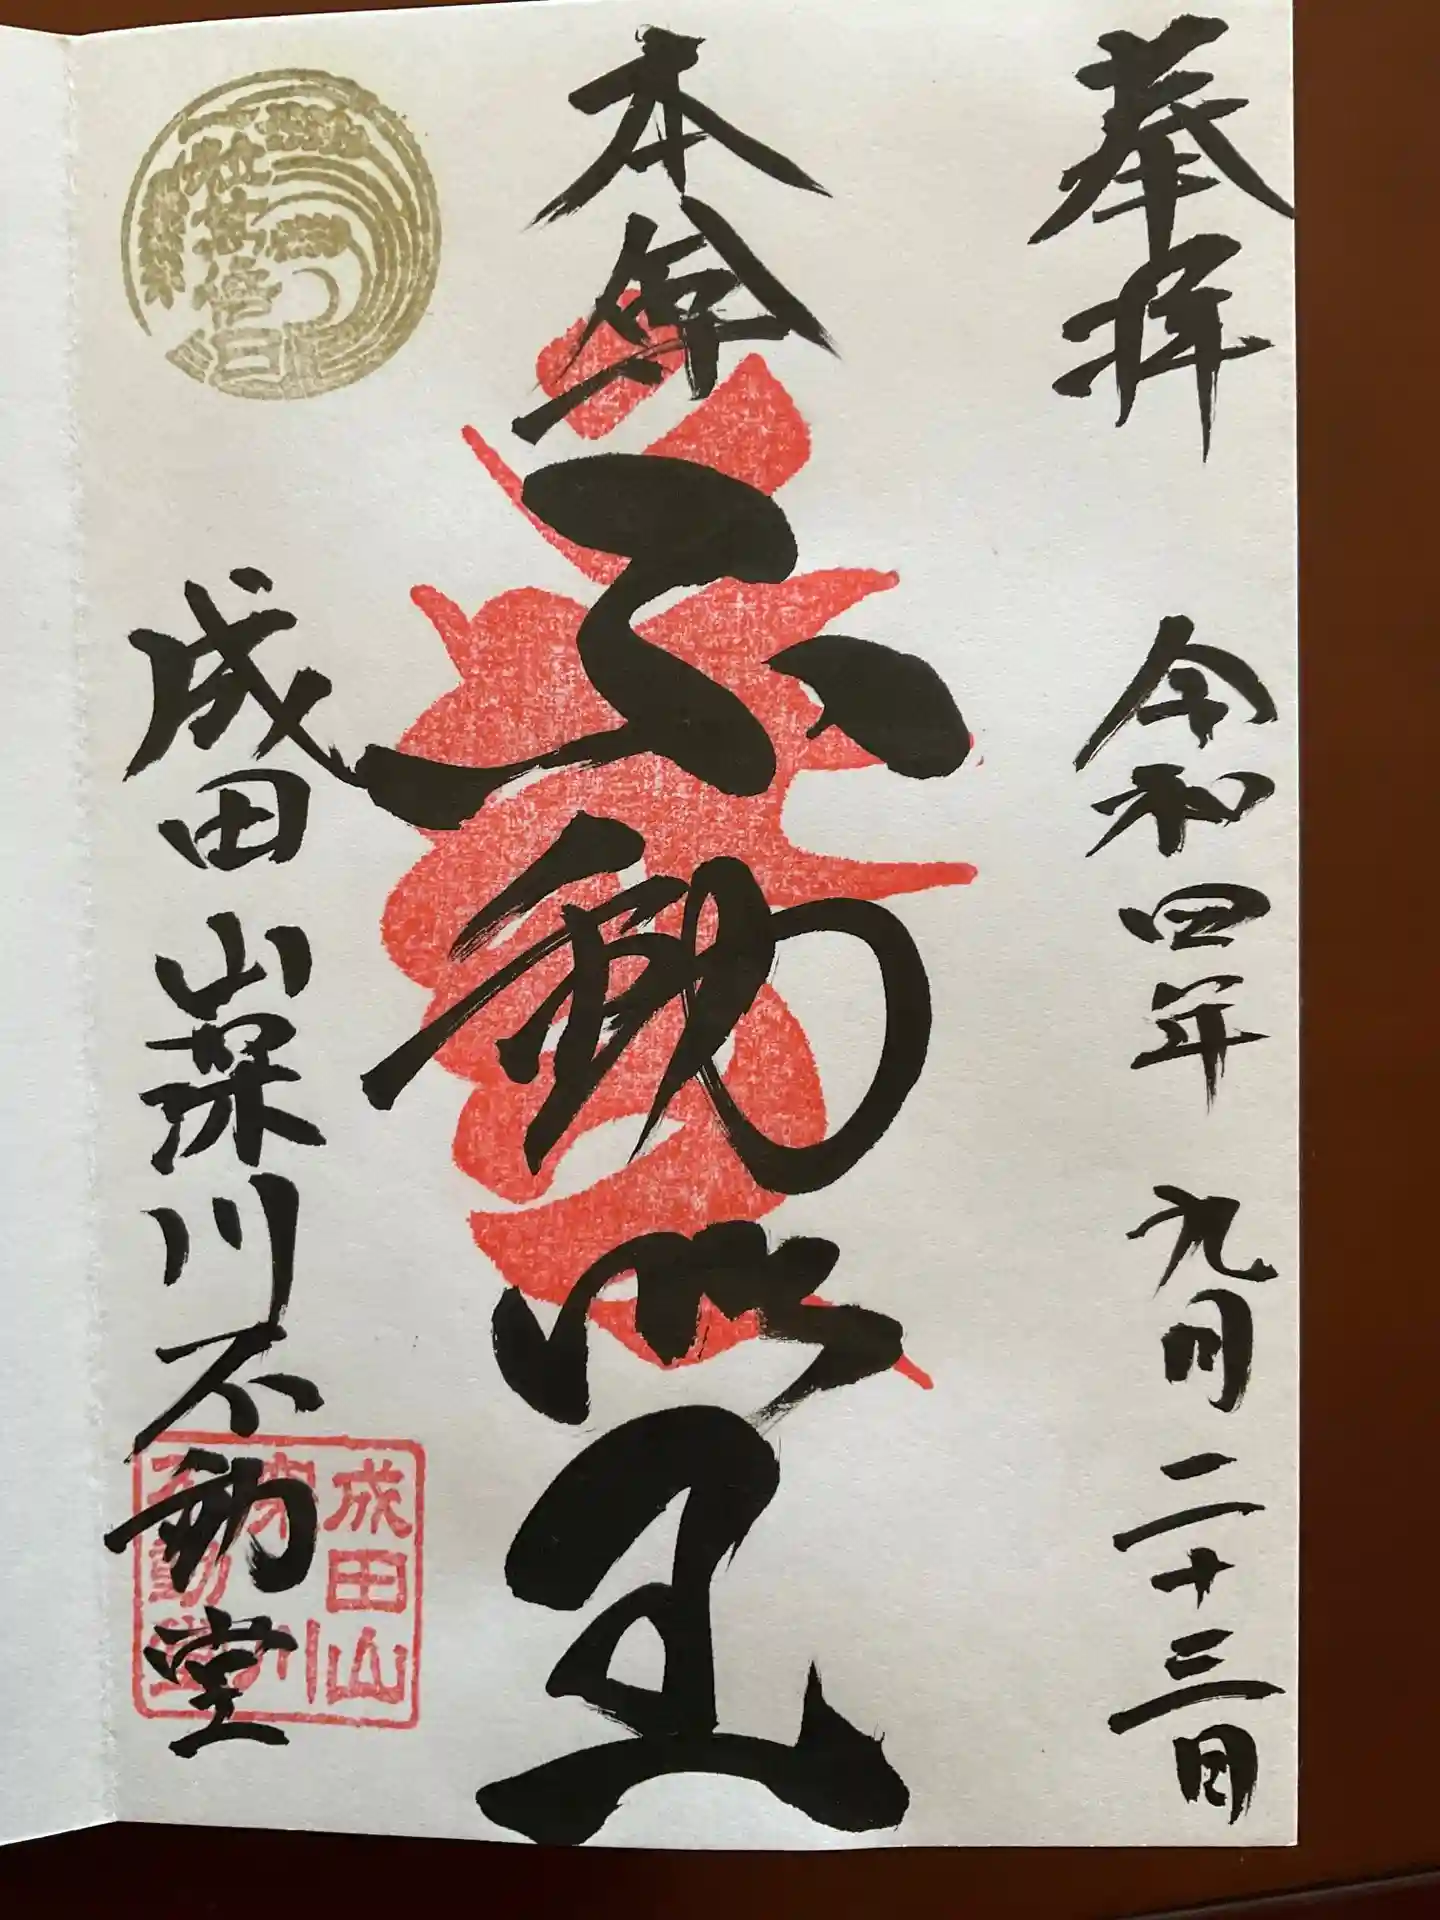 奉拝 令和四年 九月二十三日
本尊
不動明王
一粒万倍日
成田山深川不動堂
成田山
深川
不動堂